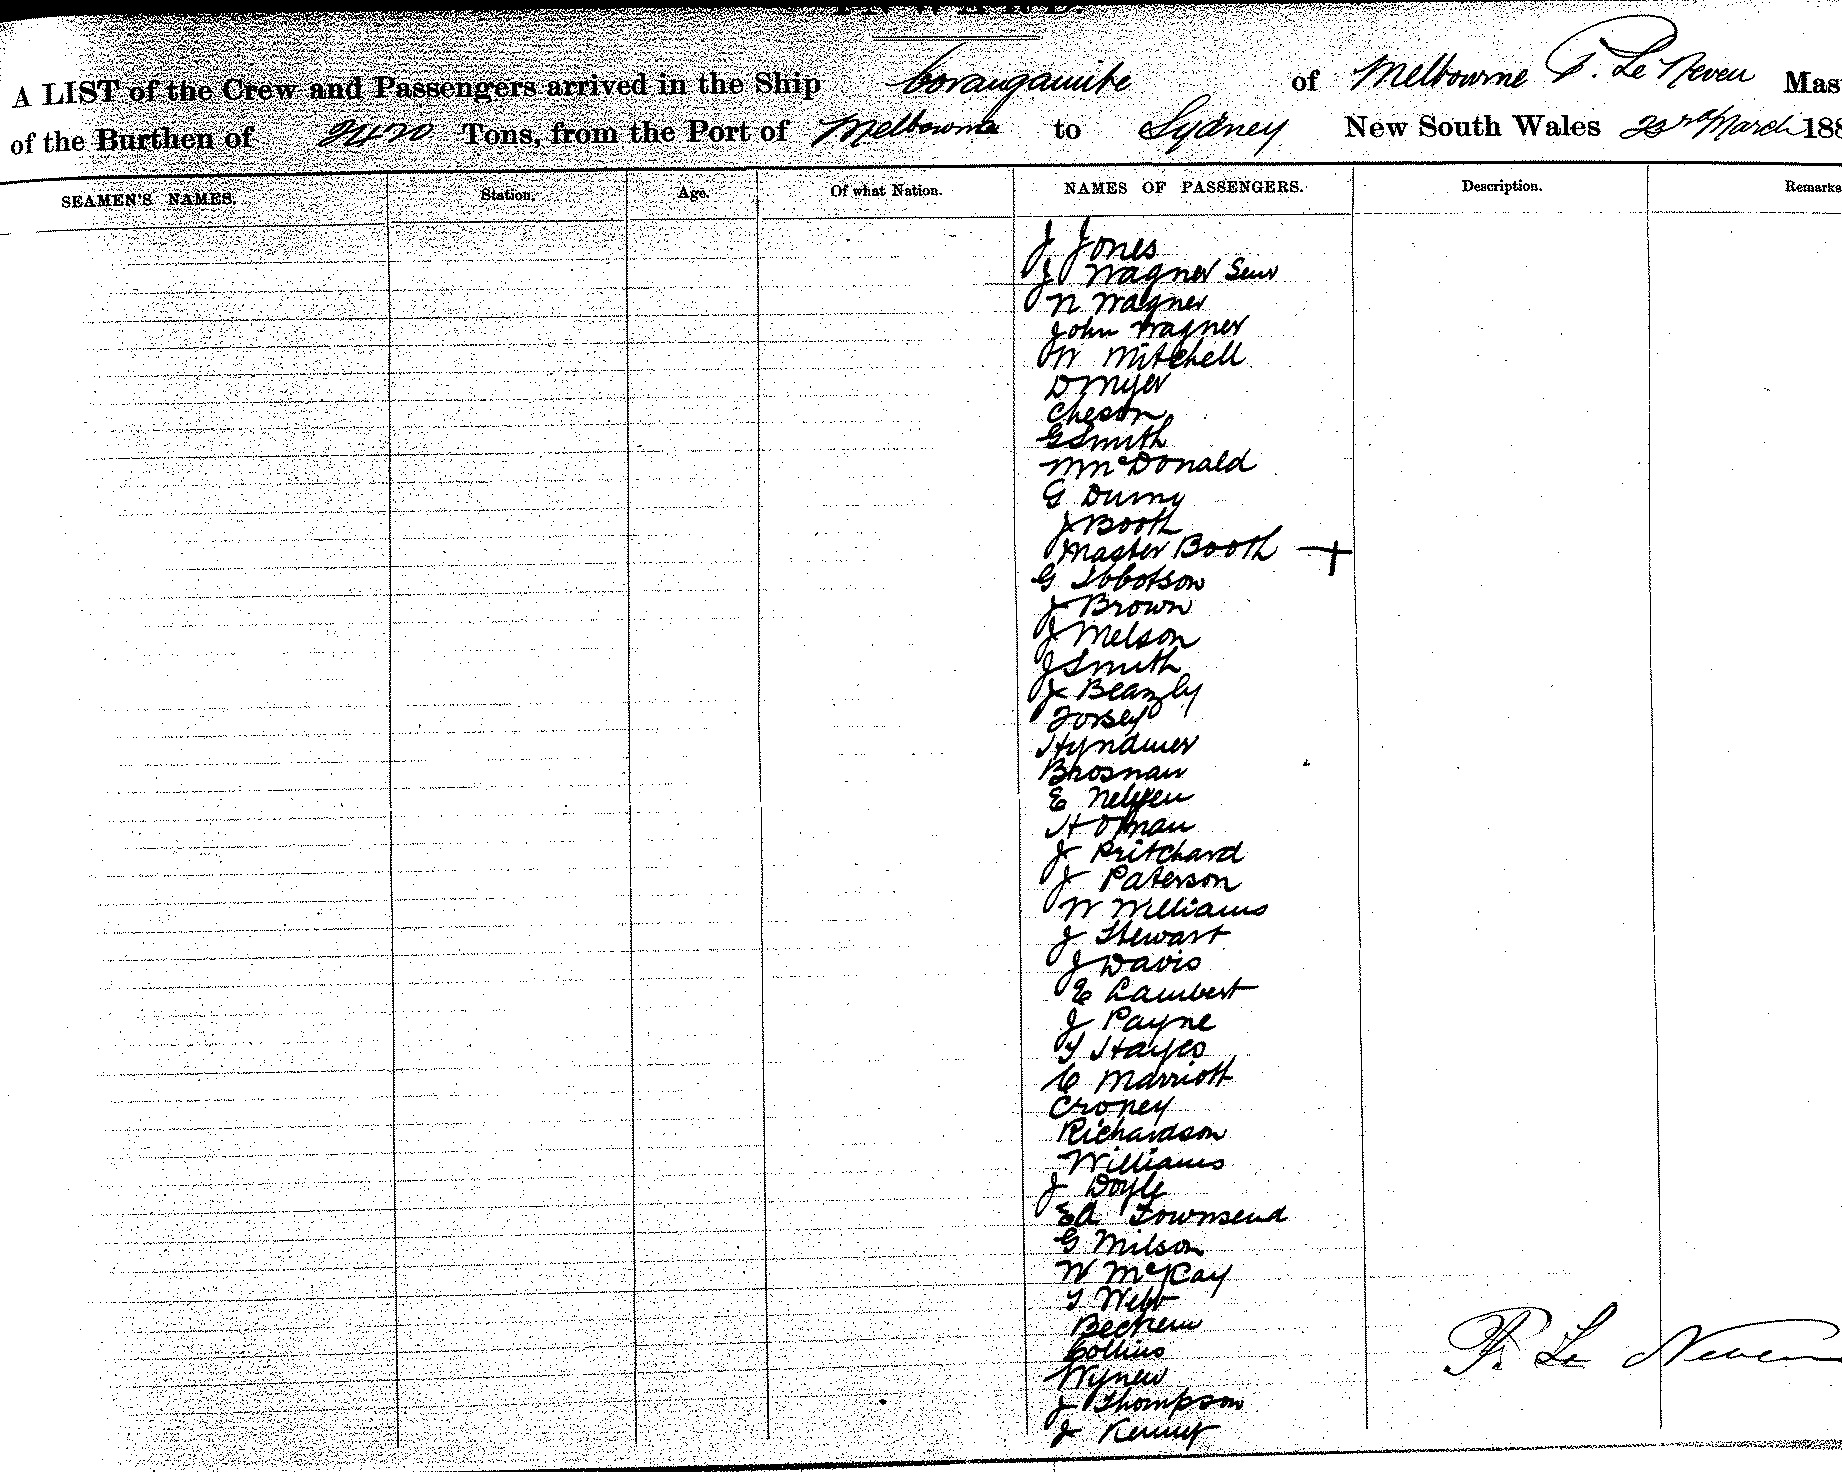 A LIST of the Crew and Passengers arrived in the Ship Corangamite of Melbourne P. Le Neveu Mas
of the Burthen of Tons, from the Port of Melbourne to Sydney New South Wales 23rd March 188
SEAMEN'S NAMES. Station. Age. Of what Nation. NAMES OF PASSENGERS. Description. Remarks
J Jones
J Wagner Senr
N Wagner
John Wagner
W Mitchell
D Myer
Cheson
G Smith
M McDonald
G Dunny
J Booth
Master Booth
G Ibbotson
J Brown
J Melson
J Smith
J Beazly
Forsey
Hyndmer
Brosnan
E
H Osman
J Pritchard
J Paterson
W Williams
J Stewart
J Davis
E Lambert
J Payne
T Hayes
C Marriott
Croney
Richardson
Williams
J Doyle
EA Townsend
G Milson
W McKay
T Webb
Collins
J Thompson
J Kenny
P. Le Neveu